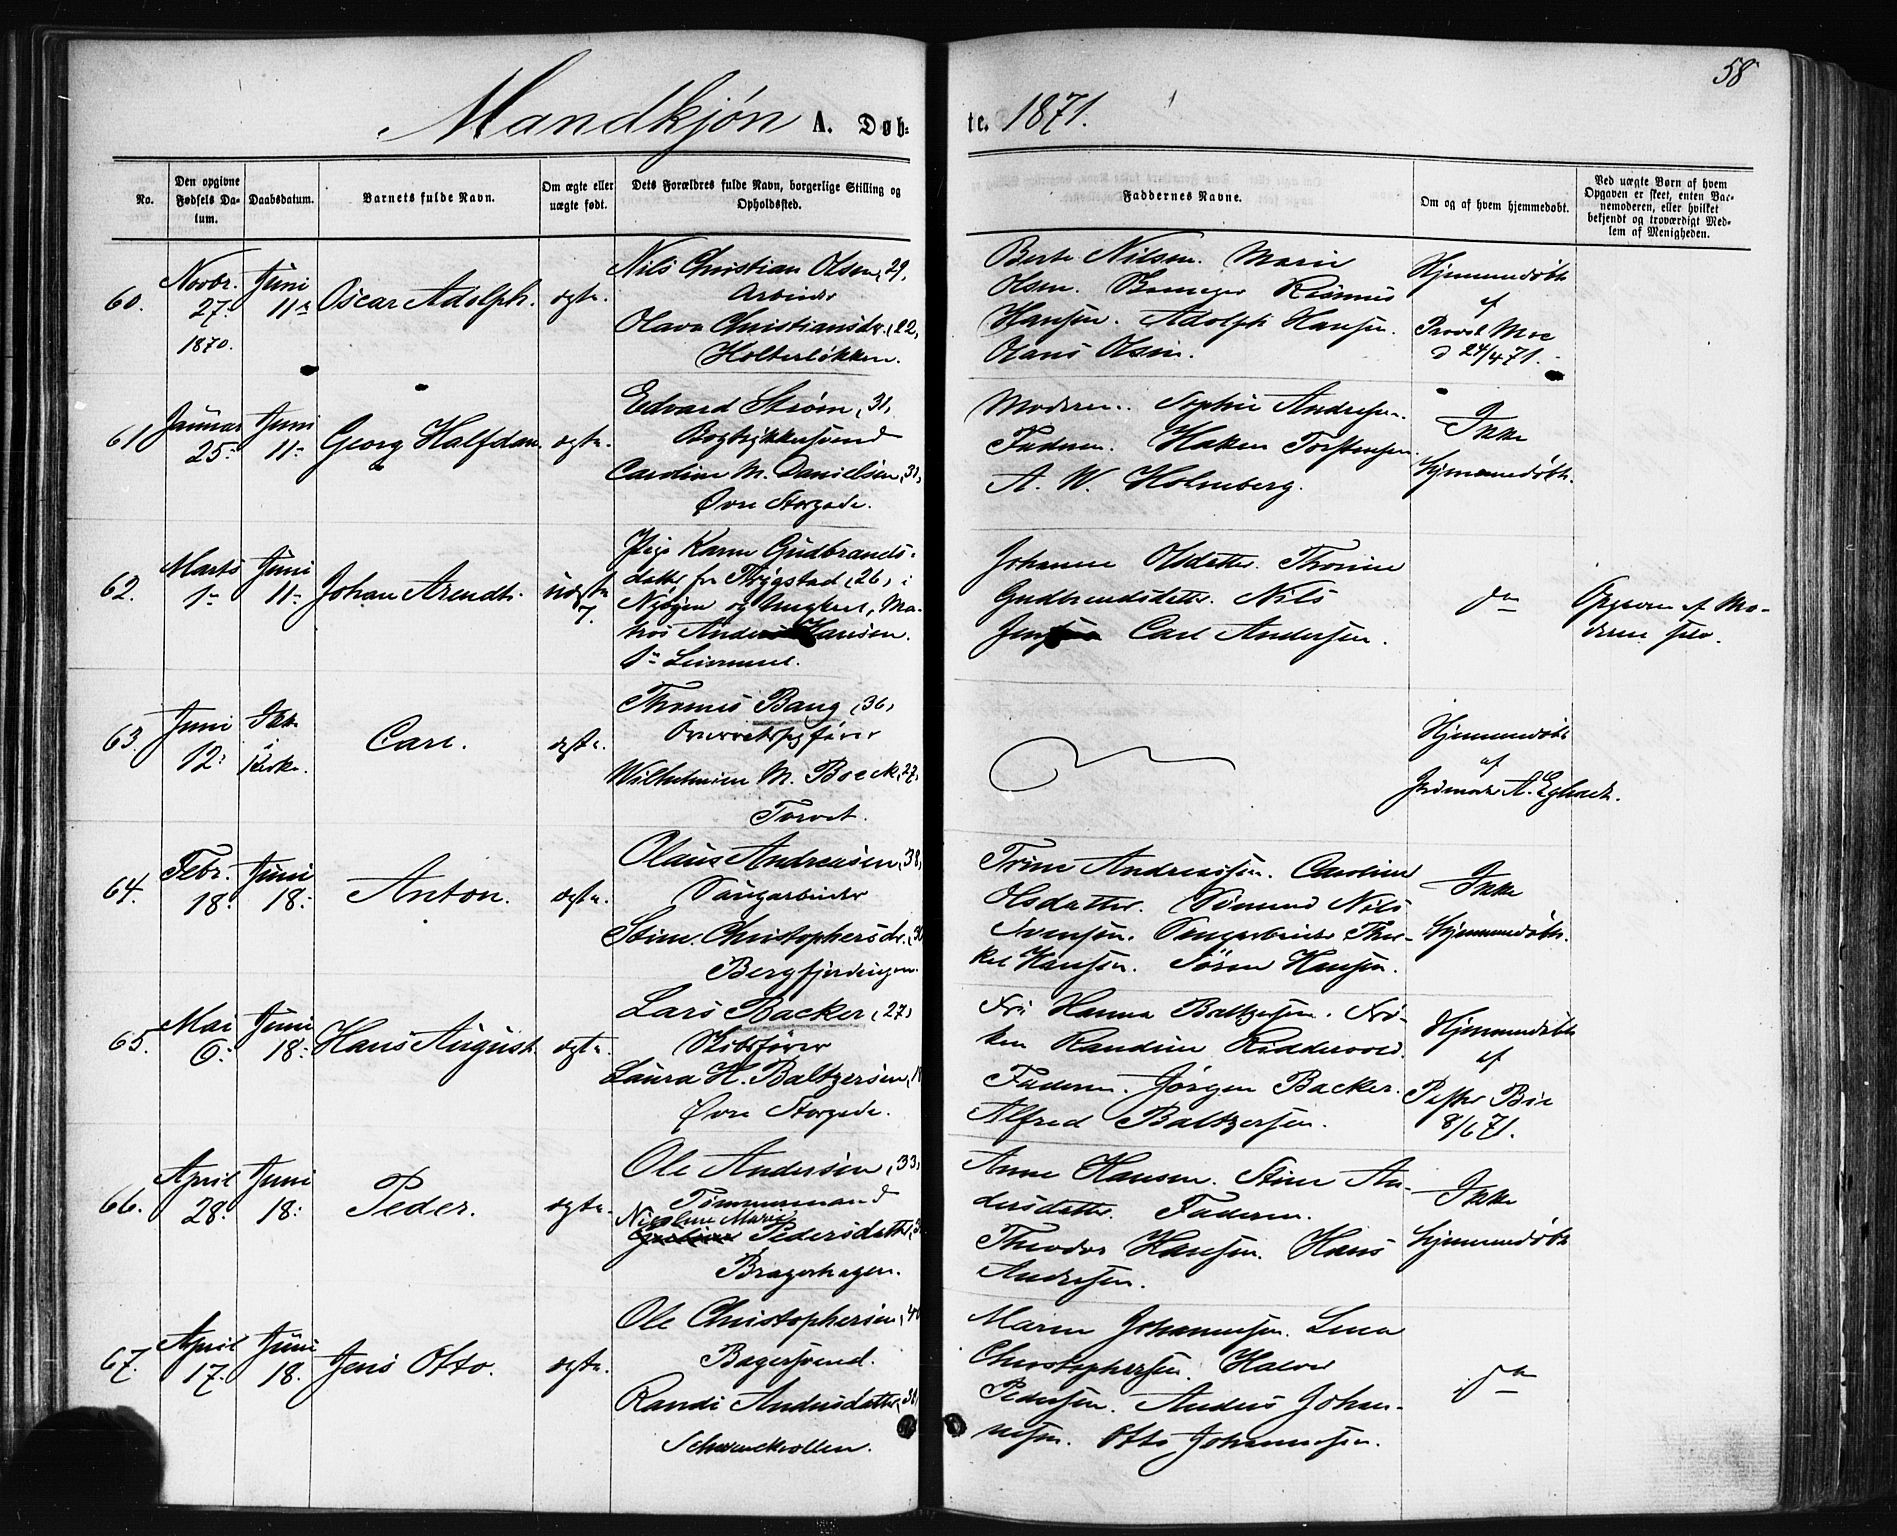 58
Mandkjøn A. Døb-
te. 1871.
No.
Den opgivne Fødsels Da-
tum.
Daabsdatum.
Barnets fulde Navn.
Om ægte eller
uægte født.
Dets Forældres fulde Navn, borgerlige Stilling og
Opholdssted.
Faddernes Navne.
Om og af hvem hjemmedøbt.
Ved uægte Børn af hvem
Opgaven er skeet, enten Bar-
nemoderen, eller hvilket
bekjendt og troværdigt Med-
lem af Menigheden.
60.
Novbr.
27.
1870.
Juni
11
Oscar Adolph.
ægte.
Nils Christian Olsen, 29,
Arbeider
Olava Christiansdr. 22,
Holterløkken.
Berte Nilsen. Marie
Olsen. Rasmus
Hansen. Adolph Hansen.
Olaus Olsen.
Hjemmedøbt
af
Provst Moe
d 24/4 71.
61
Januar
25
Juni
11
Georg Halfdan
ægte.
Edvard Strøm, 31,
Bogtrykkersvend
Caroline M. Danielsen, 31,
Øvre Storgade.
Moderen. Sophie Andresen.
Faderen. Haken Torstensen.
A. W. Holmberg.
Ikke
hjemmedøbt.
62.
Marts
1
Juni
11
Johan Arendt
uægte
7.
Pige Karen Gudbrands-
datter fra Trygstad, 26, i
Nybyen og Ungkarl, Ma-
tros Anders Hansen.
Johanne Olsdatter. Thorine
Gudbrandsdatter. Nils
Jensen Carl Andersen.
do
Opgaven af Mo-
deren selv.
63.
Juni
12
Ikke
i
Kirke.
Carl.
ægte.
Thomas Bang, 36,
Overretssagfører
Wilhelmine M. Boeck, 27,
Torvet.
Hjemmedøbt
af
Jordmoder A.
64.
Febr.
18
Juni
18
Anton.
ægte.
Olaus Andreasen, 38,
Saugarbeider
Stine Christophersdr. 30
Bergfjerdingen.
Trine Andreassen. Caroline
Olsdatter. Nils
Svensen. Saugarbeider Thor-
kel Hansen. Søren Hansen.
Ikke
hjemmedøbt.
65.
Mai
6
Juni
18
Hans August.
ægte.
Lars Backer, 27,
Skibsfører
Laura H. Baltzersen,
Øvre Storgade.
Fru Hanna Baltzersen. Frø-
ken Randine Riddervold.
Faderen. Jørgen Backer.
Alfred Baltzersen.
Hjemmedøbt
af
Pastor Bie
8/6 71.
66.
April
28
Juni
18
Peder.
ægte.
Ole Andersen, 33,
Tømmermand
Nicoline Marie
Pedersdatter,
Bragerhagen.
Anne Hansen. Stine An-
dersdatter. Faderen.
Theodor Hansen. Hans
Andersen.
Ikke
hjemmedøbt
67.
April
17.
Juni
18.
Jens Otto.
ægte.
Ole Christophersen, 40
Bagersvend.
Randi Andersdatter, 38
Schwenckvollen.
Maren Johannesen. Lena
Christophersen. Halvor
Pedersen. Anders Johan-
nesen. Otto Johannesen.
do